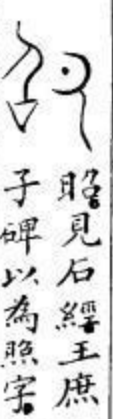 昭見石經王庶
子碑以為照字